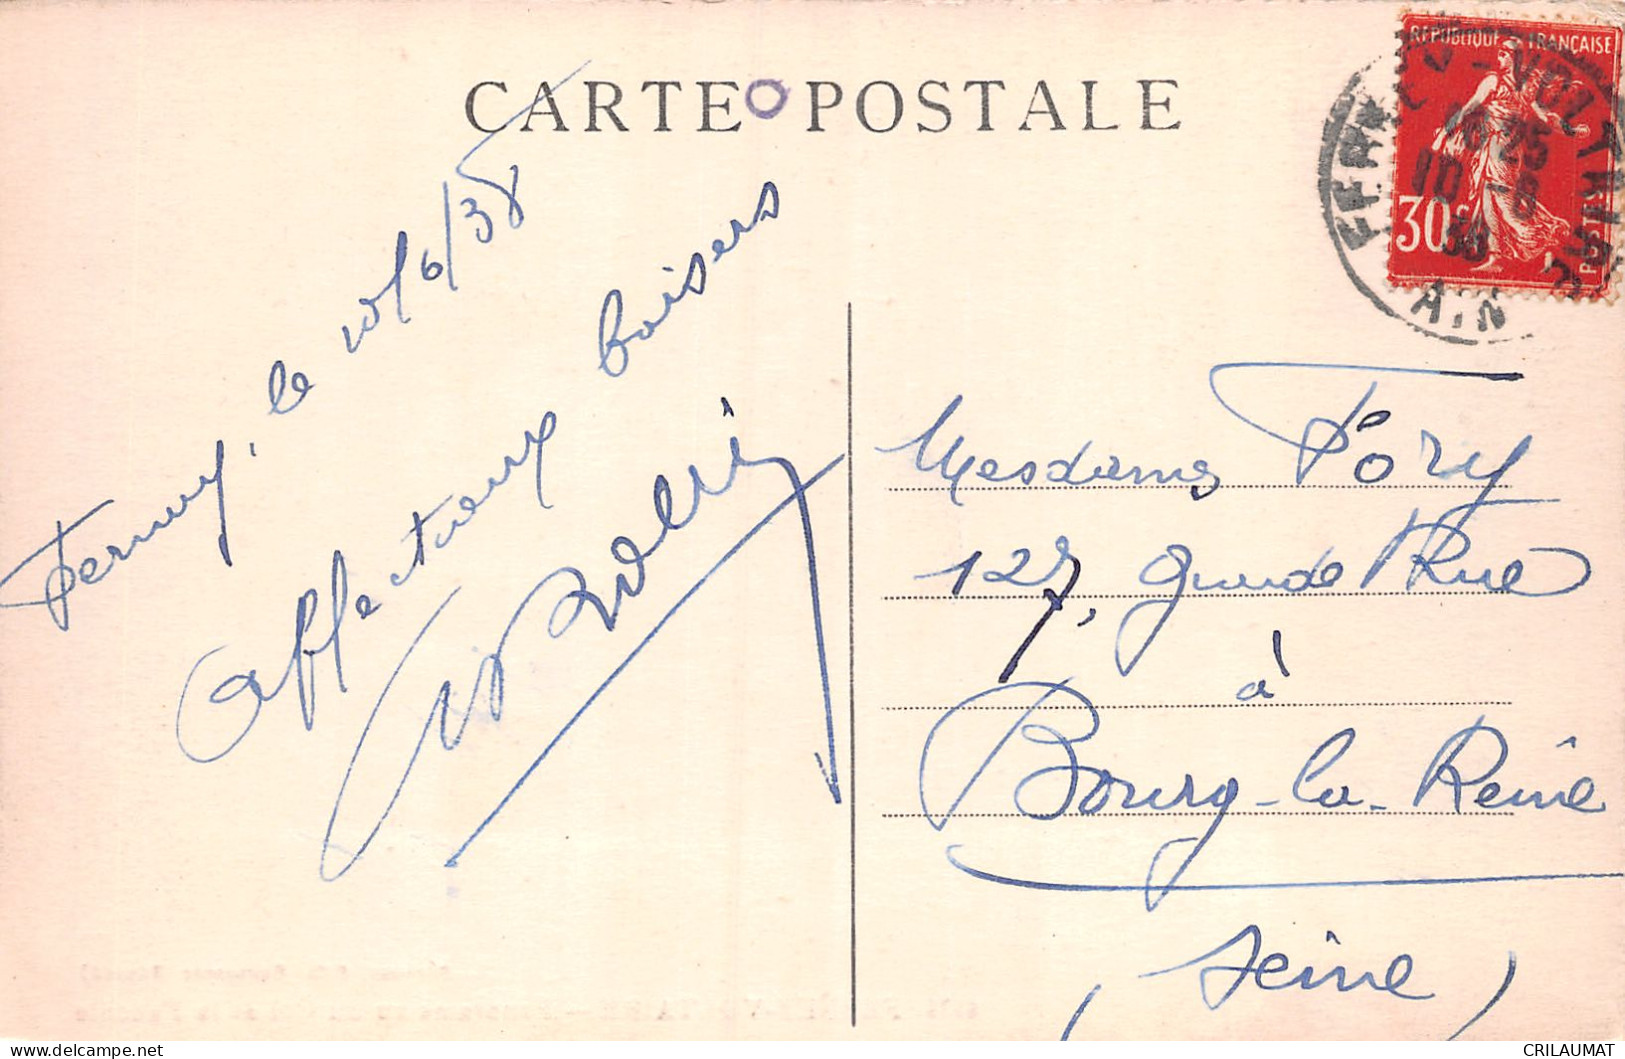 CARTE POSTALE
RÉPUBLIQUE FRANÇAISE
30c
POSTES
FERNEY-VOLTAIRE
10-6
38
AIN
Ferney, le 10/6/38
Affectueux baisers
Mesdames Fory
127, Grande Rue
à
Bourg-la-Reine
(Seine)
CRILAUMAT